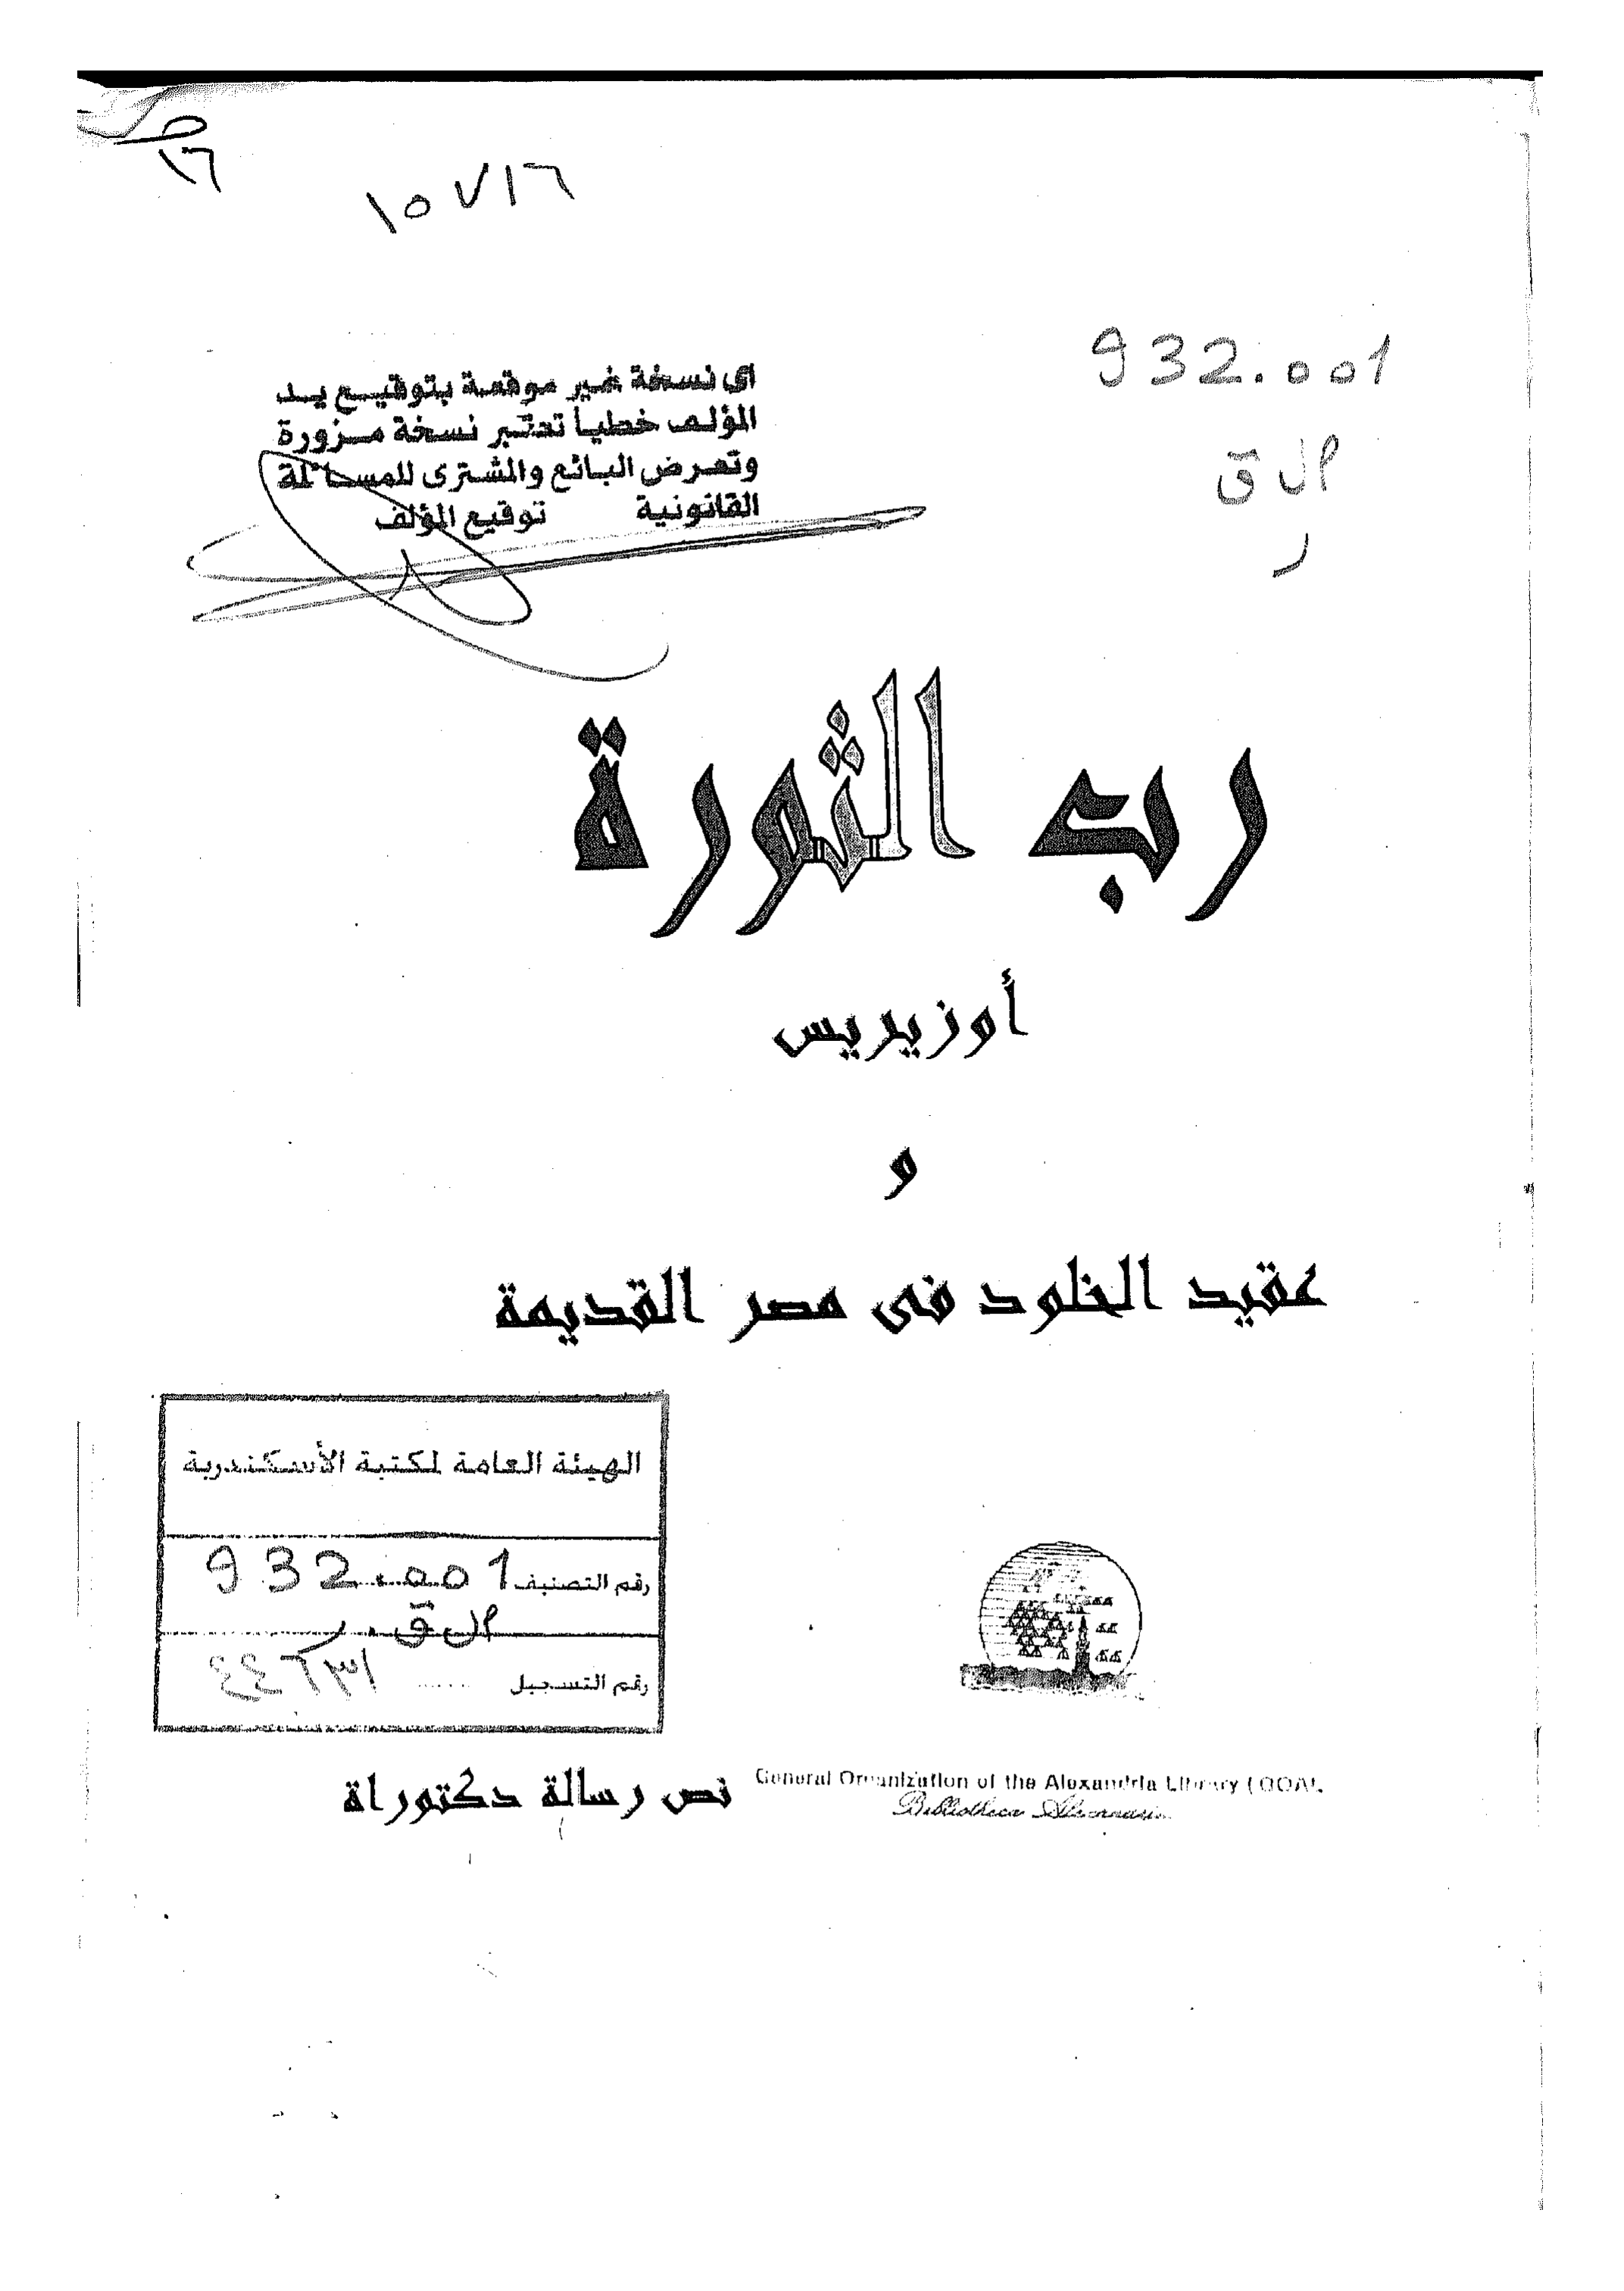 ١٦
١٥٧١٦
932.001
اى نسخة غير موقعة بتوقيع يد
المؤلف خطياً تعتبر نسخة مزورة
وتعرض البائع والمشترى للمسائلة
القانونية توقيع المؤلف
رب الثورة
أوزيريس
و
عقيد الخلود فى مصر القديمة
الهيئة العامة لمكتبة الأسكندرية
رقم التصنيف 932.001
رقم التسجيل ٤٤٦٣١
نص رسالة دكتوراة
General Organization of the Alexandria Library (GOAL
Bibliotheca Alexandrina